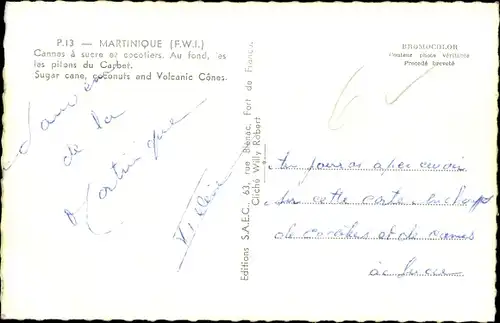 P.13 — MARTINIQUE (F.W.I.)
Cannes à sucre et cocotiers. Au fond, les
les pitons du Carbet.
Sugar cane, coconuts and Volcanic Cônes.
de la
Martinique
Editions S.A.E.C., 63, rue Blénac, Fort de France
Cliché Willy Robert
BROMOCOLOR
Couleur photo véritable
Procédé breveté
tu pourras apercevoir
sur cette carte un champ
de cocotiers et de cannes
à sucre